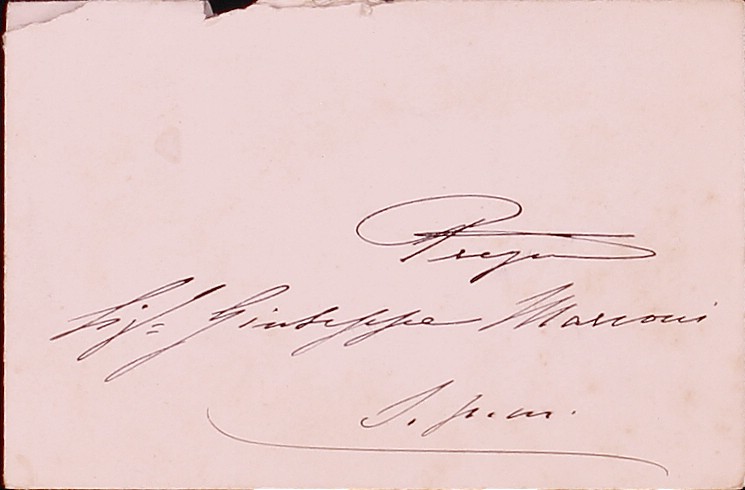 Preg.
Sig= Giuseppe Marconi
S. p. m.